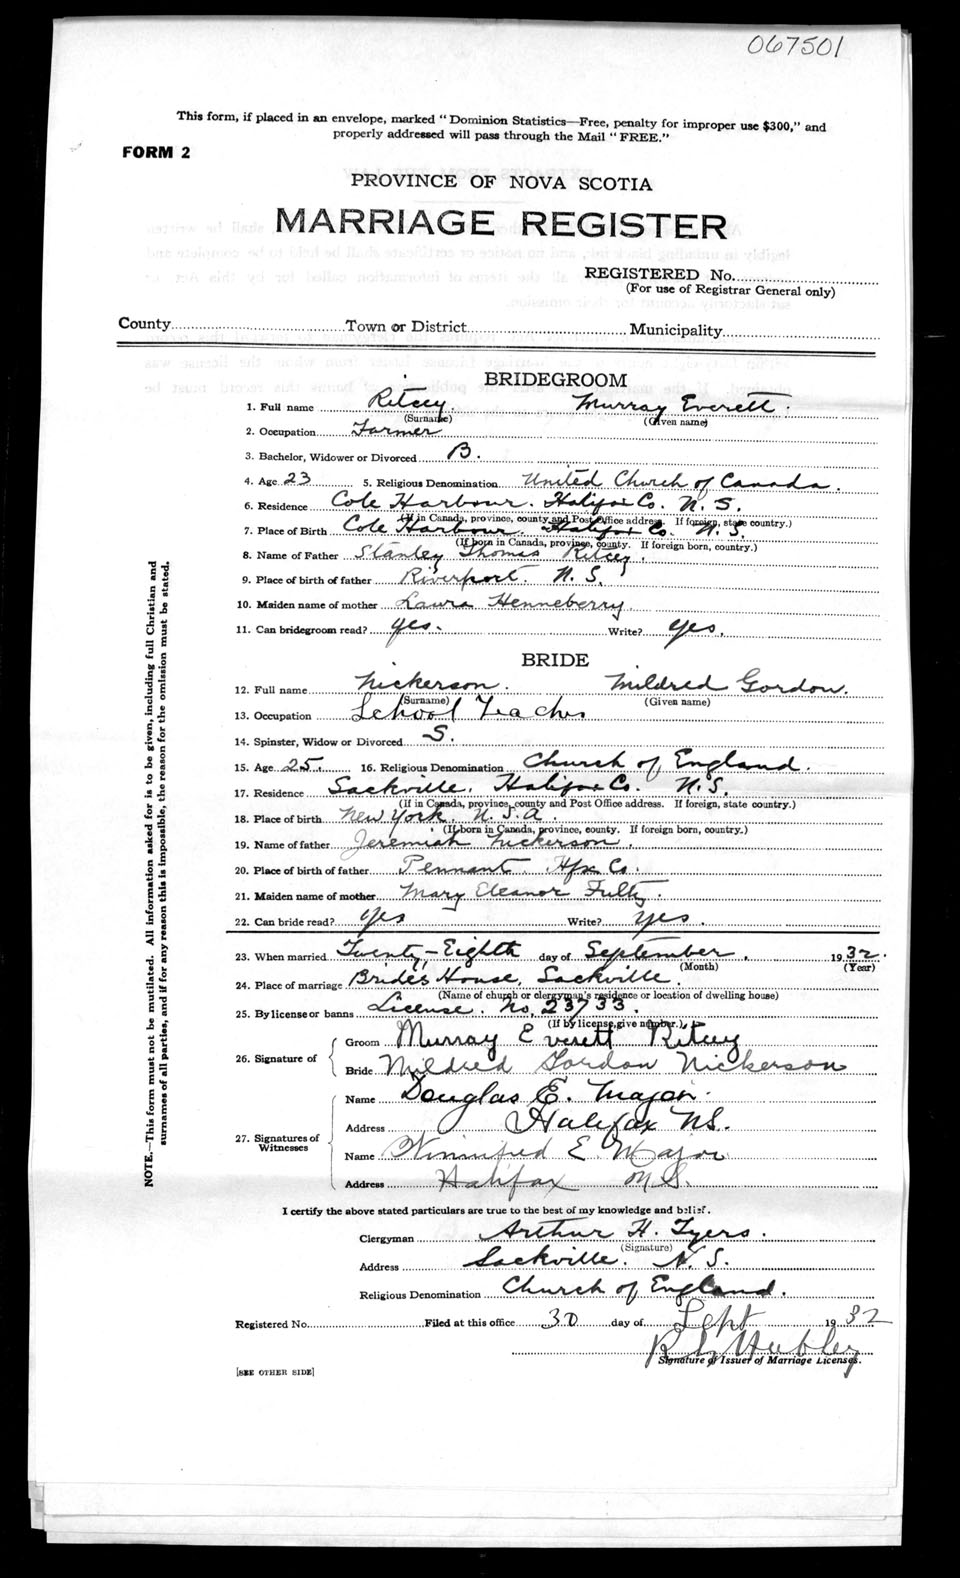 067501
This form, if placed in an envelope, marked "Dominion Statistics—Free, penalty for improper use $300," and
properly addressed will pass through the Mail "FREE."
FORM 2
PROVINCE OF NOVA SCOTIA
MARRIAGE REGISTER
REGISTERED No.
(For use of Registrar General only)
County Town or District Municipality
BRIDEGROOM
1. Full name Ritcey. Murray Everett.
(Surname) (Given name)
2. Occupation Farmer
3. Bachelor, Widower or Divorced B.
4. Age 23 5. Religious Denomination United Church of Canada.
6. Residence Cole Harbour. Halifax Co. N. S.
(If in Canada, province, county and Post Office address. If foreign, state country.)
7. Place of Birth Cole Harbour. Halifax Co. N. S.
(If born in Canada, province, county. If foreign born, country.)
8. Name of Father Stanley Thomas Ritcey.
9. Place of birth of father Riverport. N. S.
10. Maiden name of mother Laura Henneberry
11. Can bridegroom read? yes. Write? yes.
BRIDE
12. Full name Nickerson. Mildred Gordon.
(Surname) (Given name)
13. Occupation School Teacher
14. Spinster, Widow or Divorced S.
15. Age 25. 16. Religious Denomination Church of England.
17. Residence Sackville. Halifax Co. N. S.
(If in Canada, province, county and Post Office address. If foreign, state country.)
18. Place of birth New York. U. S. A.
(If born in Canada, province, county. If foreign born, country.)
19. Name of father Jeremiah Nickerson.
20. Place of birth of father Pennant. Hfx Co.
21. Maiden name of mother Mary Eleanor
22. Can bride read? yes Write? yes.
23. When married Twenty-Eighth day of September, 1932.
(Month) (Year)
24. Place of marriage Bride's House, Sackville.
(Name of church or clergyman's residence or location of dwelling house)
25. By license or banns License. No. 23733.
(If by license, give number.)
26. Signature of Groom Murray Everett Ritcey
Bride Mildred Gordon Nickerson
27. Signatures of Witnesses Name Douglas E. Major.
Address Halifax NS.
Name Winnifred E. Major
Address Halifax N.S.
I certify the above stated particulars are true to the best of my knowledge and belief.
Clergyman Arthur H. Tyers.
(Signature)
Address Sackville. N. S.
Religious Denomination Church of England.
Registered No. Filed at this office 30 day of Sept 1932
Hubley
Signature of Issuer of Marriage Licenses.
[SEE OTHER SIDE]
NOTE.—This form must not be mutilated. All information asked for is to be given, including full Christian and
surnames of all parties, and if for any reason this is impossible, the reason for the omission must be stated.